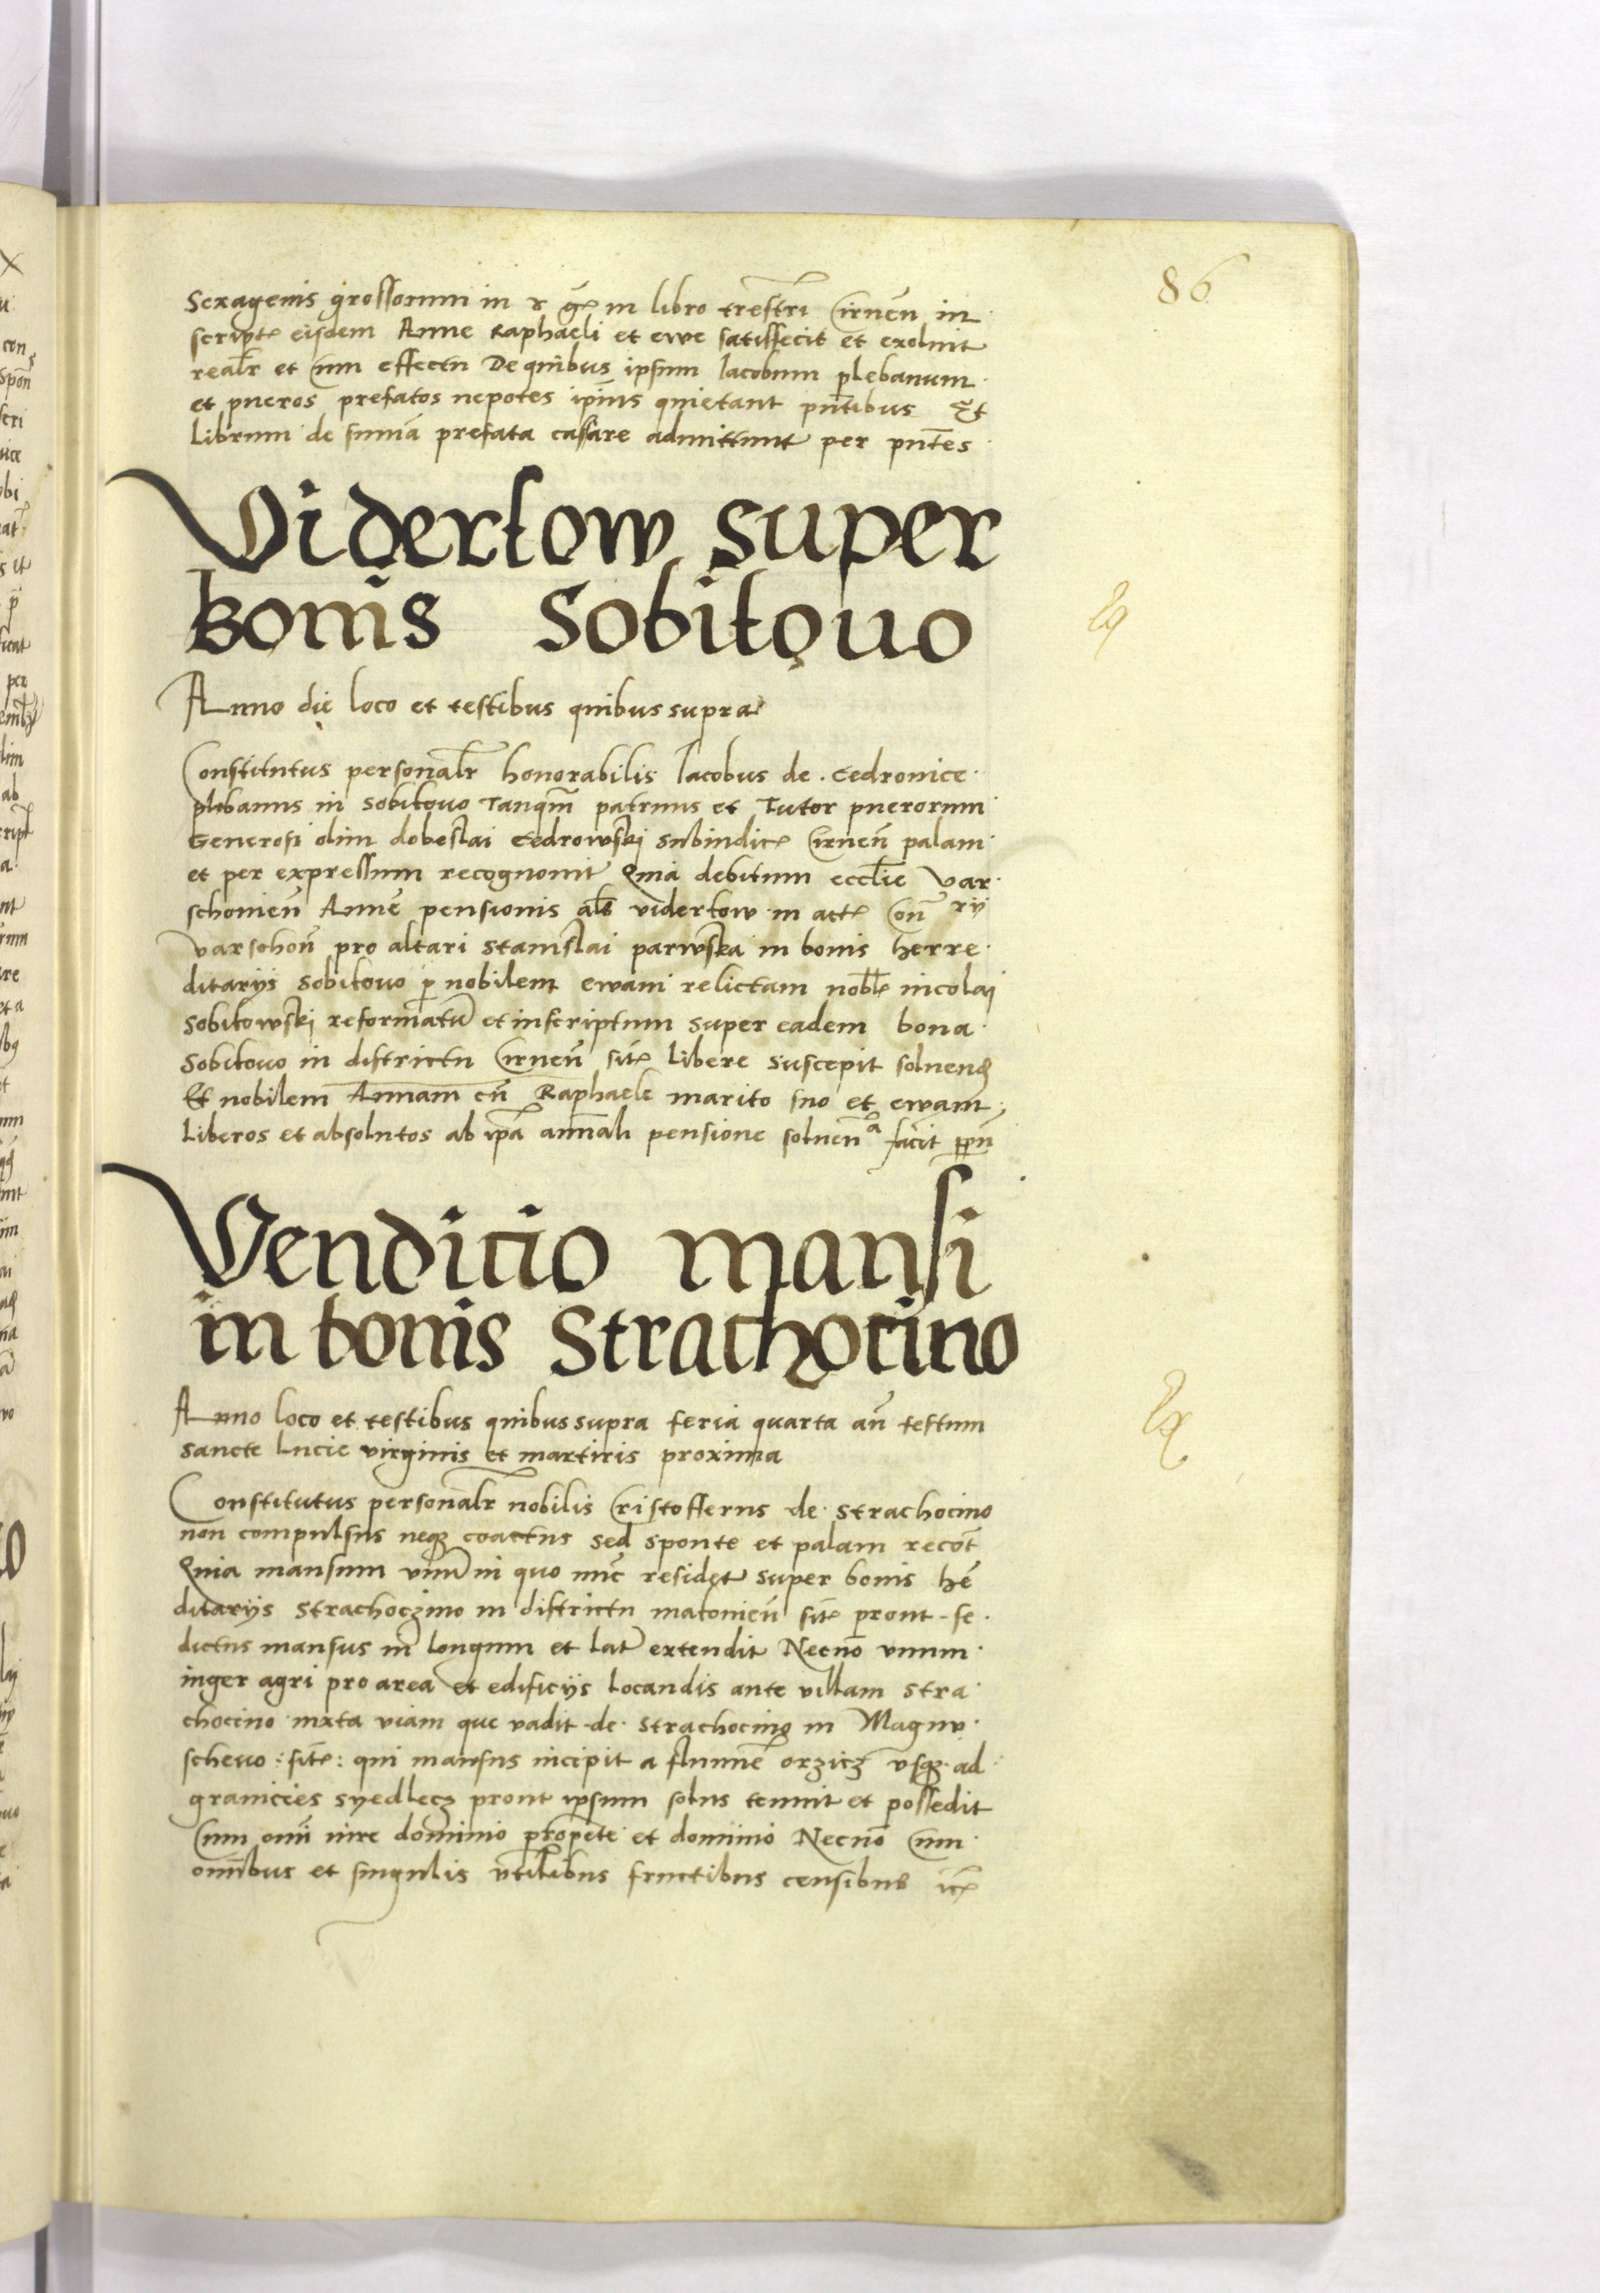 86
Sexagenis grossorum in r gͤ in libro trestri Cirneñ in
script eisdem Anne Raphaeli et ewe satisfecit et exoluit
realr et Cum effectu De quibus ipsum Iacobum plebanum
et pueros prefatos nepotes ipius quietant pñtibus Et
Librum de suma prefata cassare admittunt per pñtes
Viderkow super
bonis Sobikouo
Anno die loco et testibus quibus supra
Constitutus personalr honorabilis Iacobus de Cedrouice
plebanus in Sobikouo Tanqm patruus et Tutor puerorum
Generosi olim dobeslai Cedrowski Subiudic Cirneñ palam
et per expressum recognouit Quia debitum ecclie Var
schouieñ Annue pensionis als viderkow in act Con rij
Varschouñ pro altari Stanislai parwska in bonis herre
ditarijs Sobikouo p nobilem ewam relictam nobl nicolai
Sobikowski reformatu et inscriptum super eadem bona
Sobikouo in districtu Cirneñ sit Libere suscepit soluend
Et nobilem Annam cu Raphaele marito suo et ewam
Liberos et absolutos ab ipa annali pensione soluenª facit ppñ
Vendicio mansi
in bonis Strachocino
Anno loco et testibus quibus supra feria quarta an festum
sancte Lucie virginis et martiris proxima
Constitutus personalr nobilis Cristofferus de Strachocino
non compulsus neqȝ coactus sed sponte et palam recot
Quia mansum vnu in quo nuc residet super bonis he
ditarijs Strachoczino in districtu makouieñ sit prout se
dictus mansus in longum et lat extendit Necno vnum
iuger agri pro area et edificijs locandis ante villam Stra
chocino iuxta viam que vadit de Strachocino in Magnu
scheuo : sit : qui mansus incipit a flumie orzicz vsqȝ ad
granicies syedlecz prout ipsum solus tenuit et possedit
Cum omi iure dominio propete et dominio Necno Cum
omibus et singulis vtilibus fructibus censibus